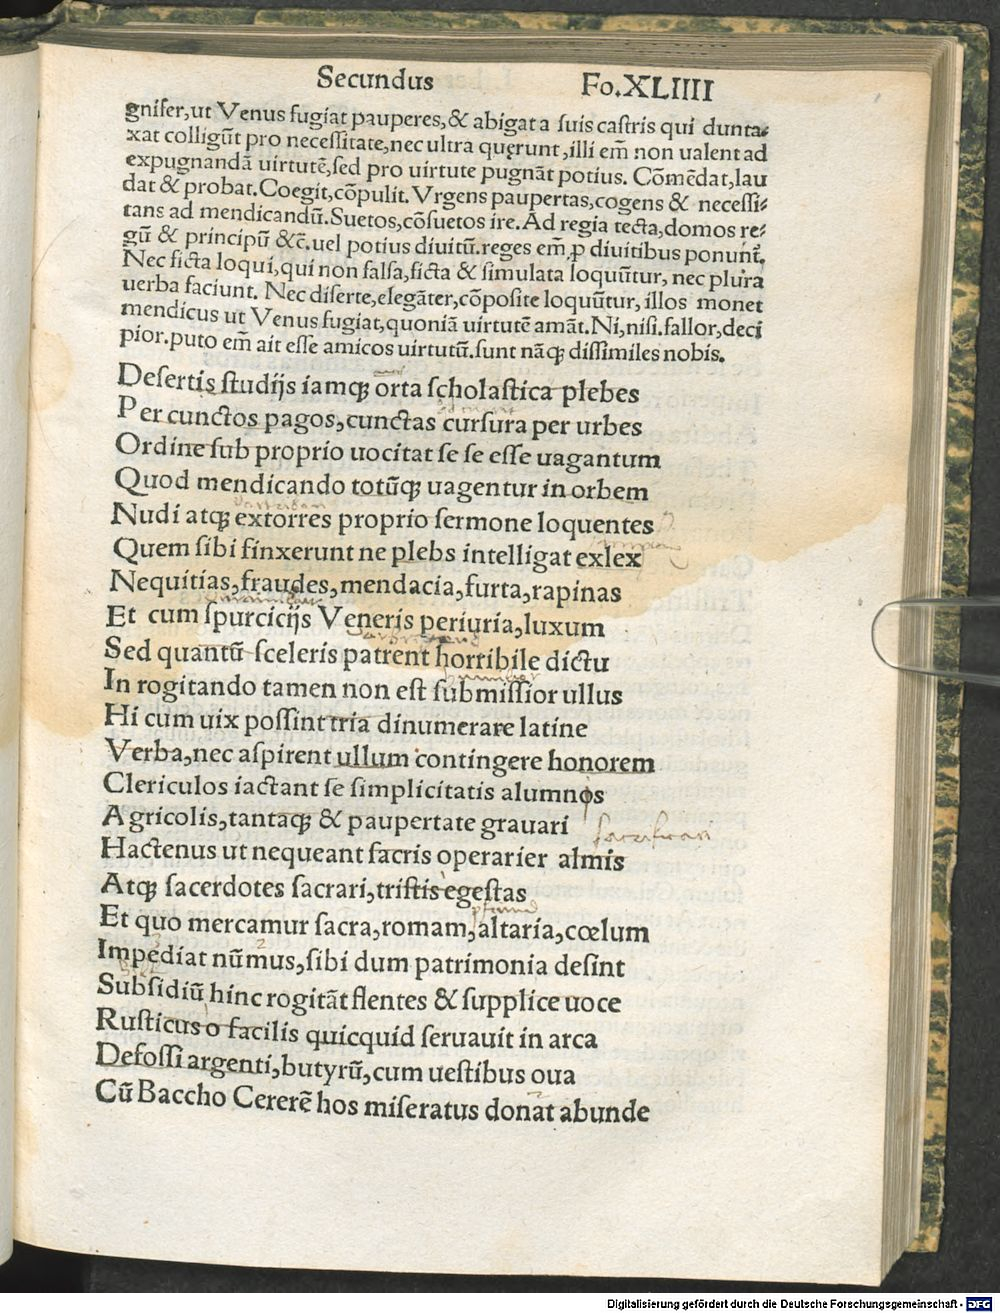 Secundus Fo.XLIIII
gnifer,ut Venus fugiat pauperes,& abigat a suis castris qui dunta⸗
xat colligūt pro necessitate,nec ultra quęrunt,illi em̄ non ualent ad
expugnandā uirtutē,sed pro uirtute pugnāt potius. Cōmēdat,lau
dat & probat.Coegit,cōpulit. Vrgens paupertas,cogens & necessi⸗
tans ad mendicandū.Suetos,cōsuetos ire.Ad regia tecta,domos re⸗
gū & principū &c̄.uel potius diuitū.reges em̄ ꝓ diuitibus ponunt̄.
Nec ficta loqui,qui non falsa,ficta & simulata loquūtur, nec plura
uerba faciunt. Nec diserte,elegāter,cōposite loquūtur, illos monet
mendicus ut Venus fugiat,quoniā uirtutē amāt.Ni,nisi.fallor,deci
pior.puto em̄ ait esse amicos uirtutū.sunt nāqꝫ dissimiles nobis.
Desertis studijs iamqꝫ orta scholastica plebes
Per cunctos pagos,cunctas cursura per urbes
Ordine sub proprio uocitat se se esse uagantum
Quod mendicando totūqꝫ uagentur in orbem
Nudi atqꝫ extorres proprio sermone loquentes
Quem sibi finxerunt ne plebs intelligat exlex
Nequitias,fraudes,mendacia,furta,rapinas
Et cum spurcicijs Veneris periuria,luxum
Sed quantū sceleris patrent horribile dictu
In rogitando tamen non est submissior ullus
Hi cum uix possint tria dinumerare latine
Verba,nec aspirent ullum contingere honorem
Clericulos iactant se simplicitatis alumnos
Agricolis,tantaqꝫ & paupertate grauari
Hactenus ut nequeant sacris operarier almis
Atqꝫ sacerdotes sacrari,tristis egestas
Et quo mercamur sacra,romam,altaria,cœlum
Impediat nūmus,sibi dum patrimonia desint
Subsidiū hinc rogitāt flentes & supplice uoce
Rusticus o facilis quicquid seruauit in arca
Defossi argenti,butyrū,cum uestibus oua
Cū Baccho Cererē hos miseratus donat abunde
Digitalisierung gefördert durch die Deutsche Forschungsgemeinschaft - DFG